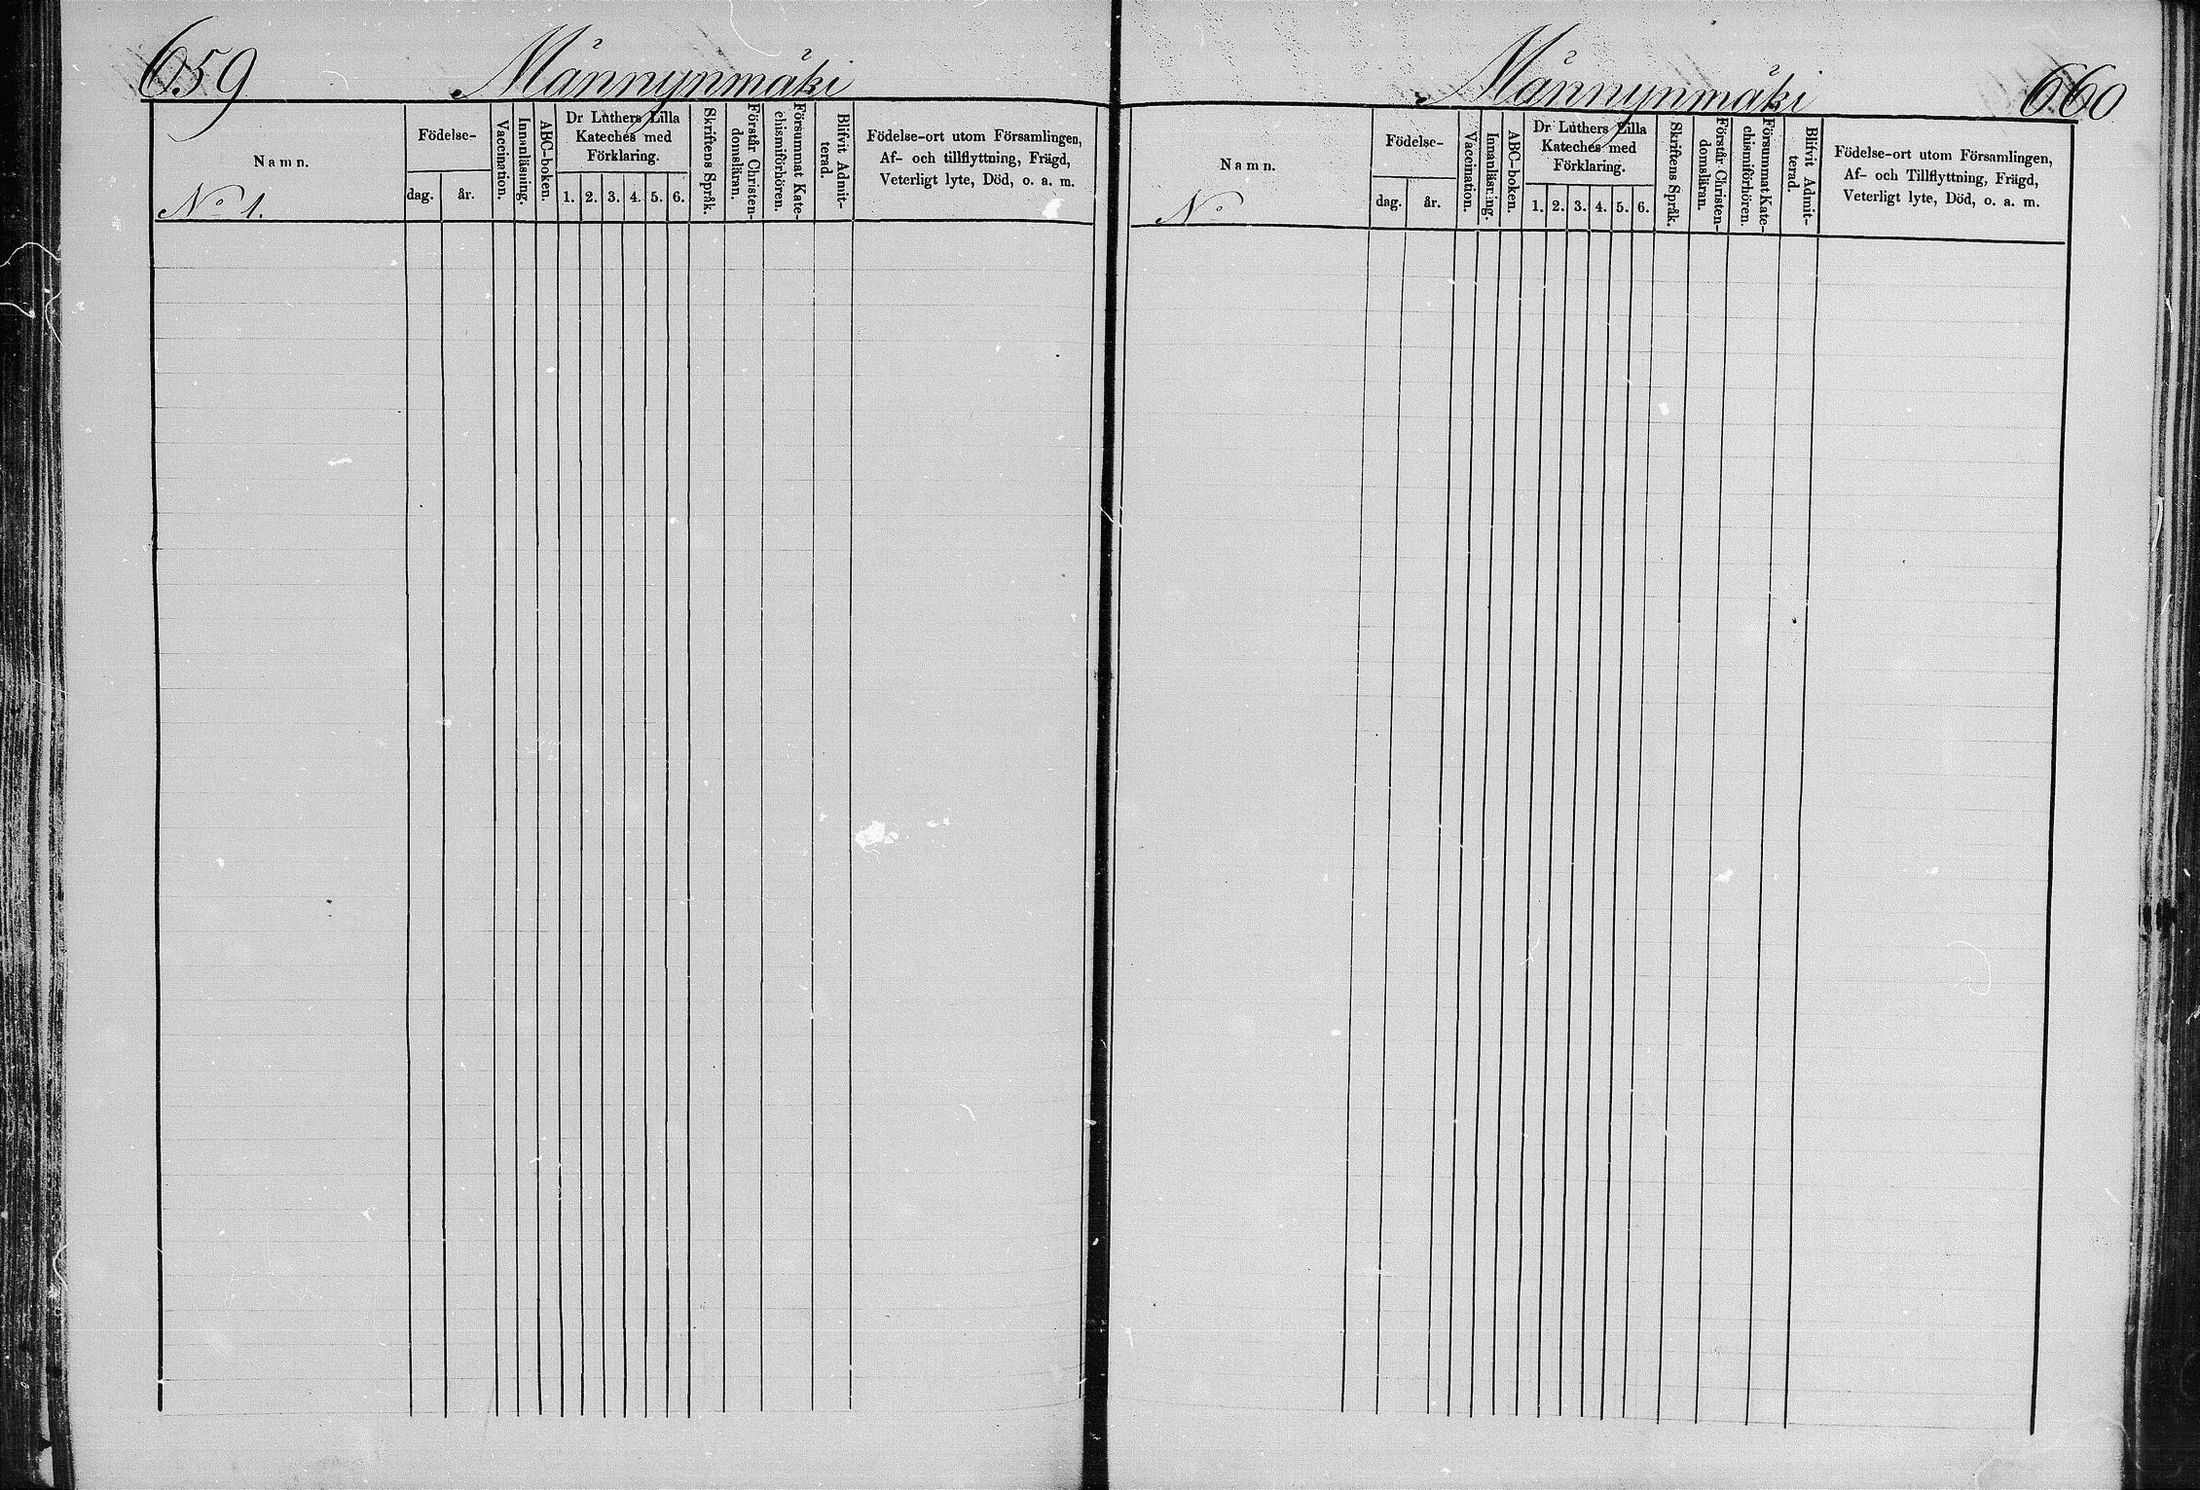 659
Männynmäki
Namn.
No 1.
Födelse-
dag.
år.
Vaccination.
Innanläsning.
ABC-boken.
Dr Luthers Lilla
Kateches med
Förklaring.
1. 2. 3. 4. 5. 6.
Skriftens Språk.
Förstår Christen-
domsläran.
Försummat Kate-
chismiförhören.
Blifvit Admit-
terad.
Födelse-ort utom Församlingen,
Af- och tillflyttning, Frägd,
Veterligt lyte, Död, o. a. m.
Männynmäki
660
Namn.
No
Födelse-
dag.
år.
Vaccination.
Innanläsning.
ABC-boken.
Dr Luthers Lilla
Kateches med
Förklaring.
1. 2. 3. 4. 5. 6.
Skriftens Språk.
Förstår Christen-
domsläran.
Försummat Kate-
chismiförhören.
Blifvit Admit-
terad.
Födelse-ort utom Församlingen,
Af- och Tillflyttning, Frägd,
Veterligt lyte, Död, o. a. m.